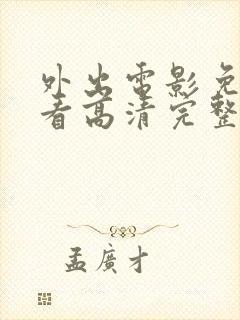 外出電影免
看高清完整
孟廣才